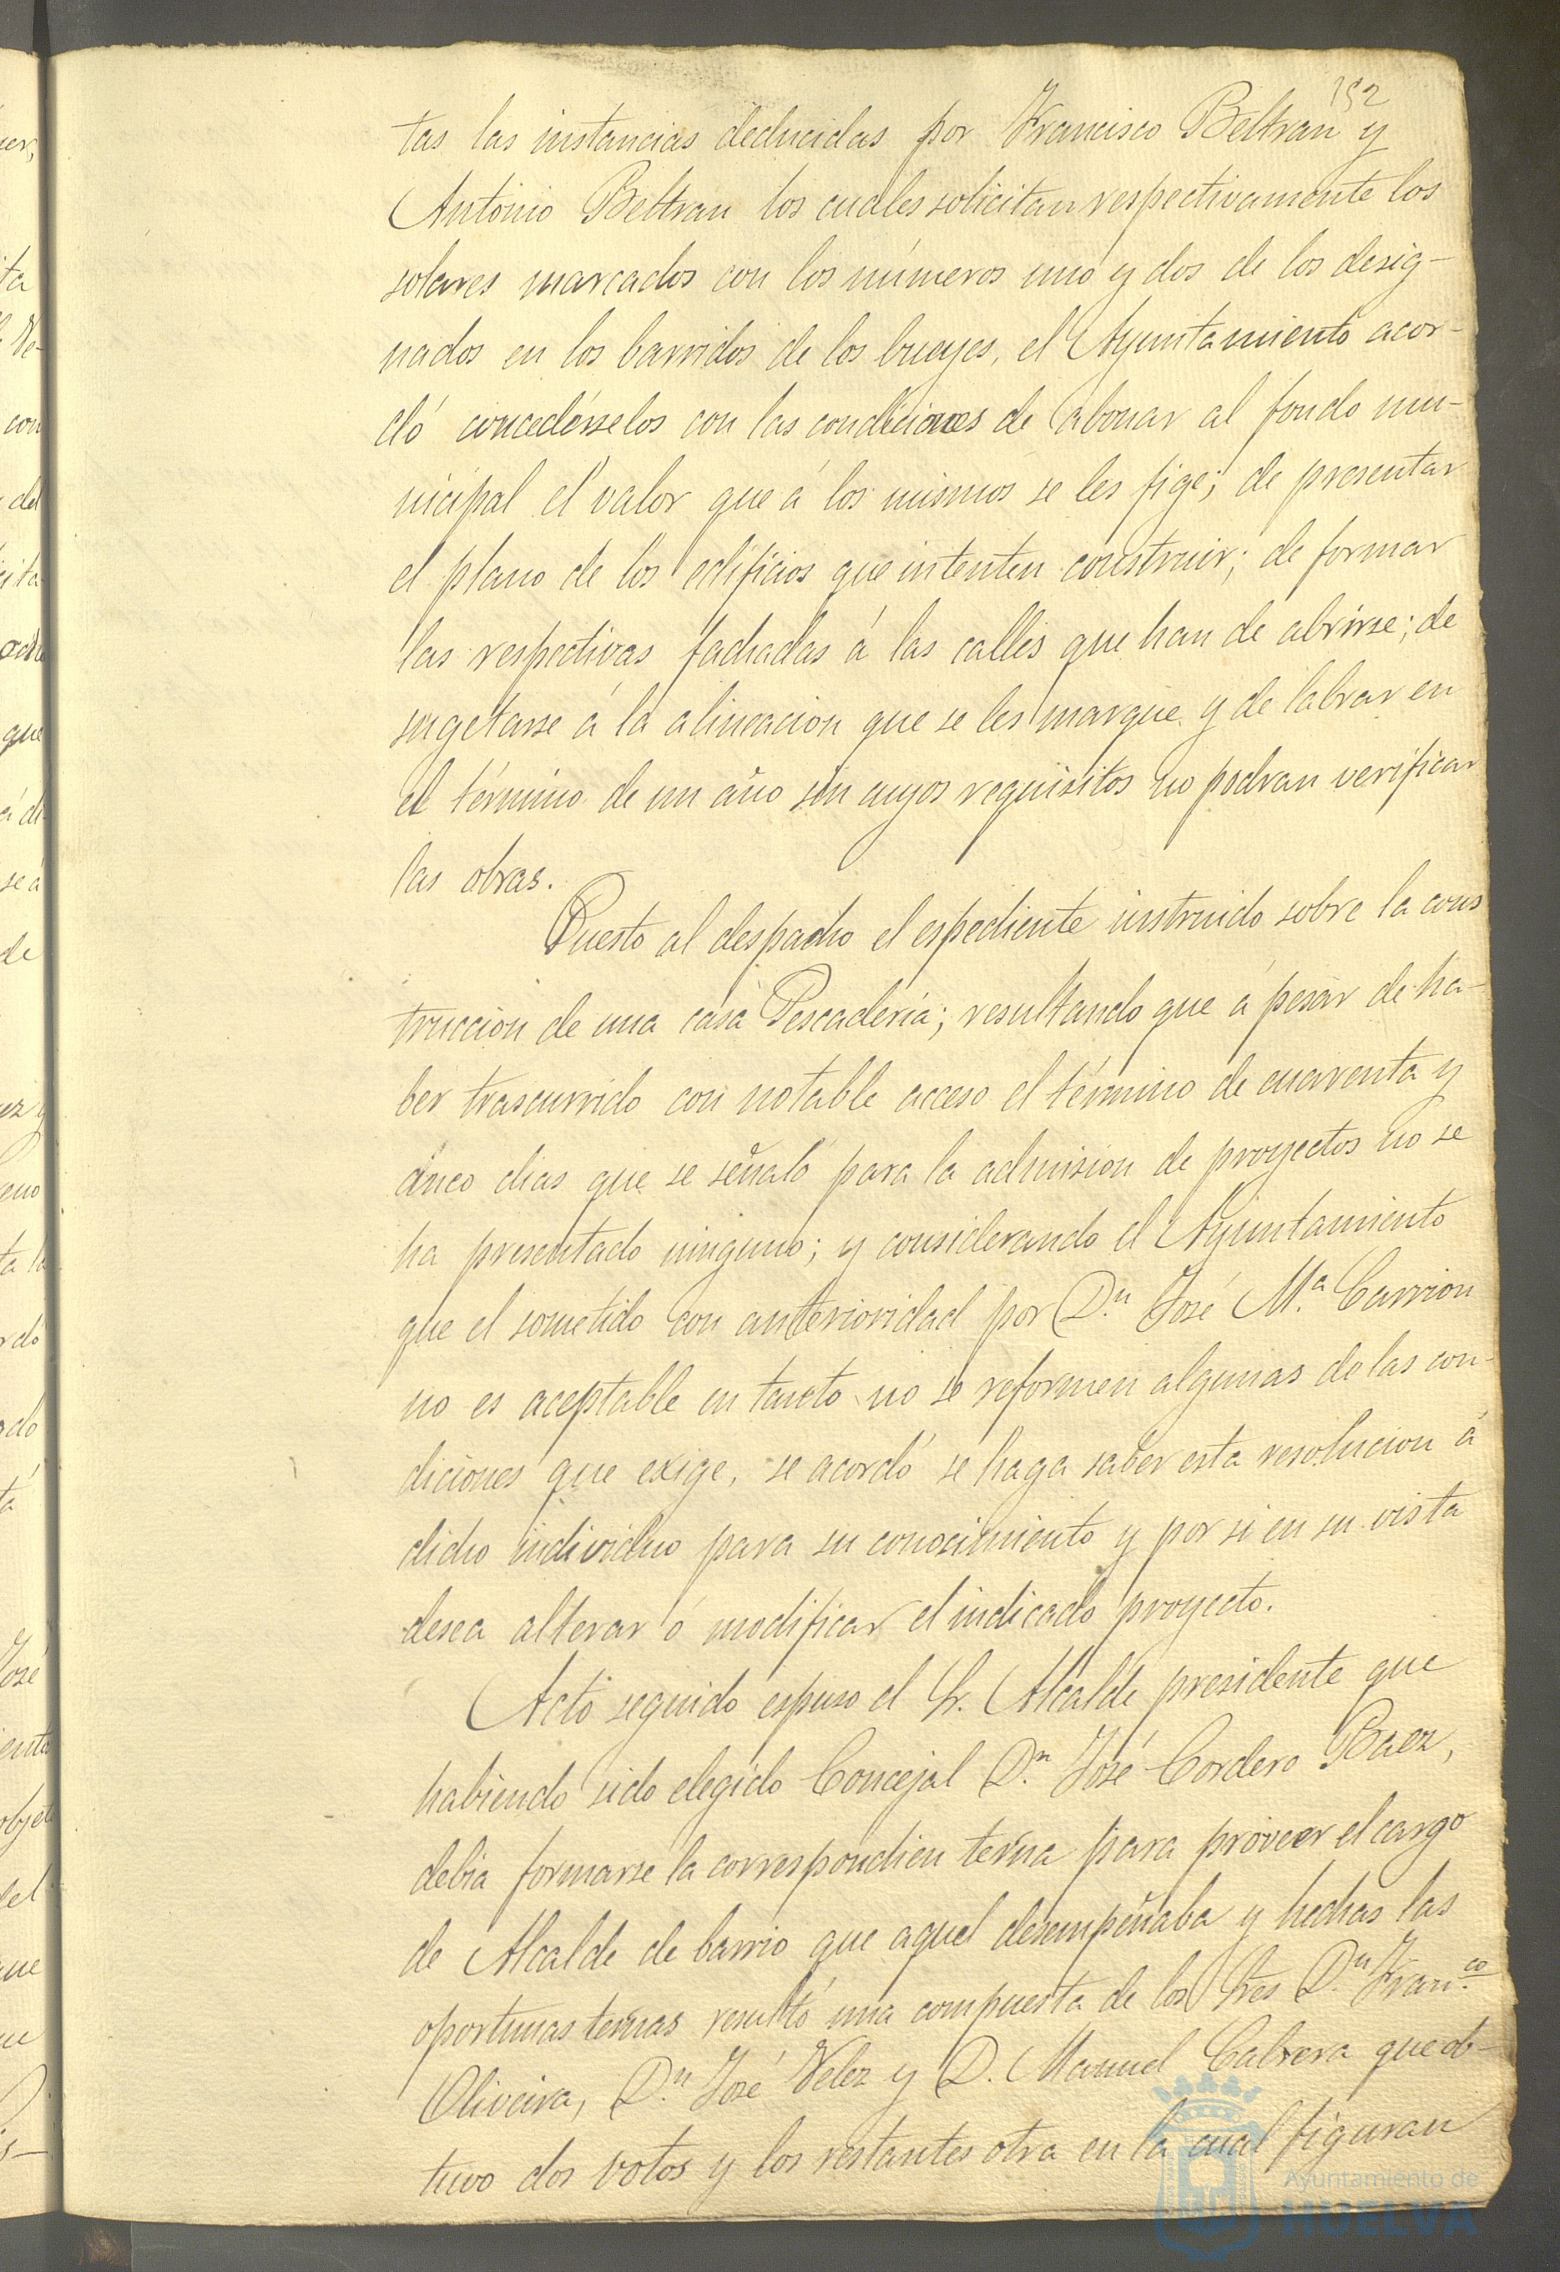 152
tas las instancias deducidas por Francisco Beltran y
Antonio Beltran los cuales solicitan respectivamente los
solares marcados con los números uno y dos de los desig-
nados en los barridos de los bueyes, el Ayuntamiento acor-
dó concedérselos con las condiciones de abonar al fondo mu-
nicipal el valor que á los mismos se les fige; de presentar
el plano de los edificios que intenten construir; de formar
las respectivas fachadas á las calles que han de abrirse; de
sugetarse á la alineacion que se les marque y de labrar en
el término de un año sin cuyos requisitos no podran verificar
las obras.
Puesto al despacho el espediente instruido sobre la cons
truccion de una casa Pescadería; resultando que á pesar de ha-
ber trascurrido con notable acceso el término de cuarenta y
cinco dias que se señaló para la admision de proyectos no se
ha presentado ninguno; y considerando el Ayuntamiento
que el sometido con anterioridad por D.n José M.a Carrion
no es aceptable en tanto no se reformen algunas de las con-
diciones que exige, se acordó se haga saber esta resolucion á
dicho individuo para su conocimiento y por si en su vista
desea alterar ó modificar el indicado proyecto.
Acto seguido espuso el Sr. Alcalde presidente que
habiendo sido elegido Concejal D.n José Cordero Baez,
debia formarse la correspondien terna para proveer el cargo
de Alcalde de barrio que aquel desempeñaba y hechas las
oportunas ternas resultó una compuesta de los Sres D.n Fran.co
Oliveira, D.n José Velez y D. Manuel Cabrera que ob-
tuvo dos votos y los restantes otra en la cual figuran
Ayuntamiento de
HUELVA